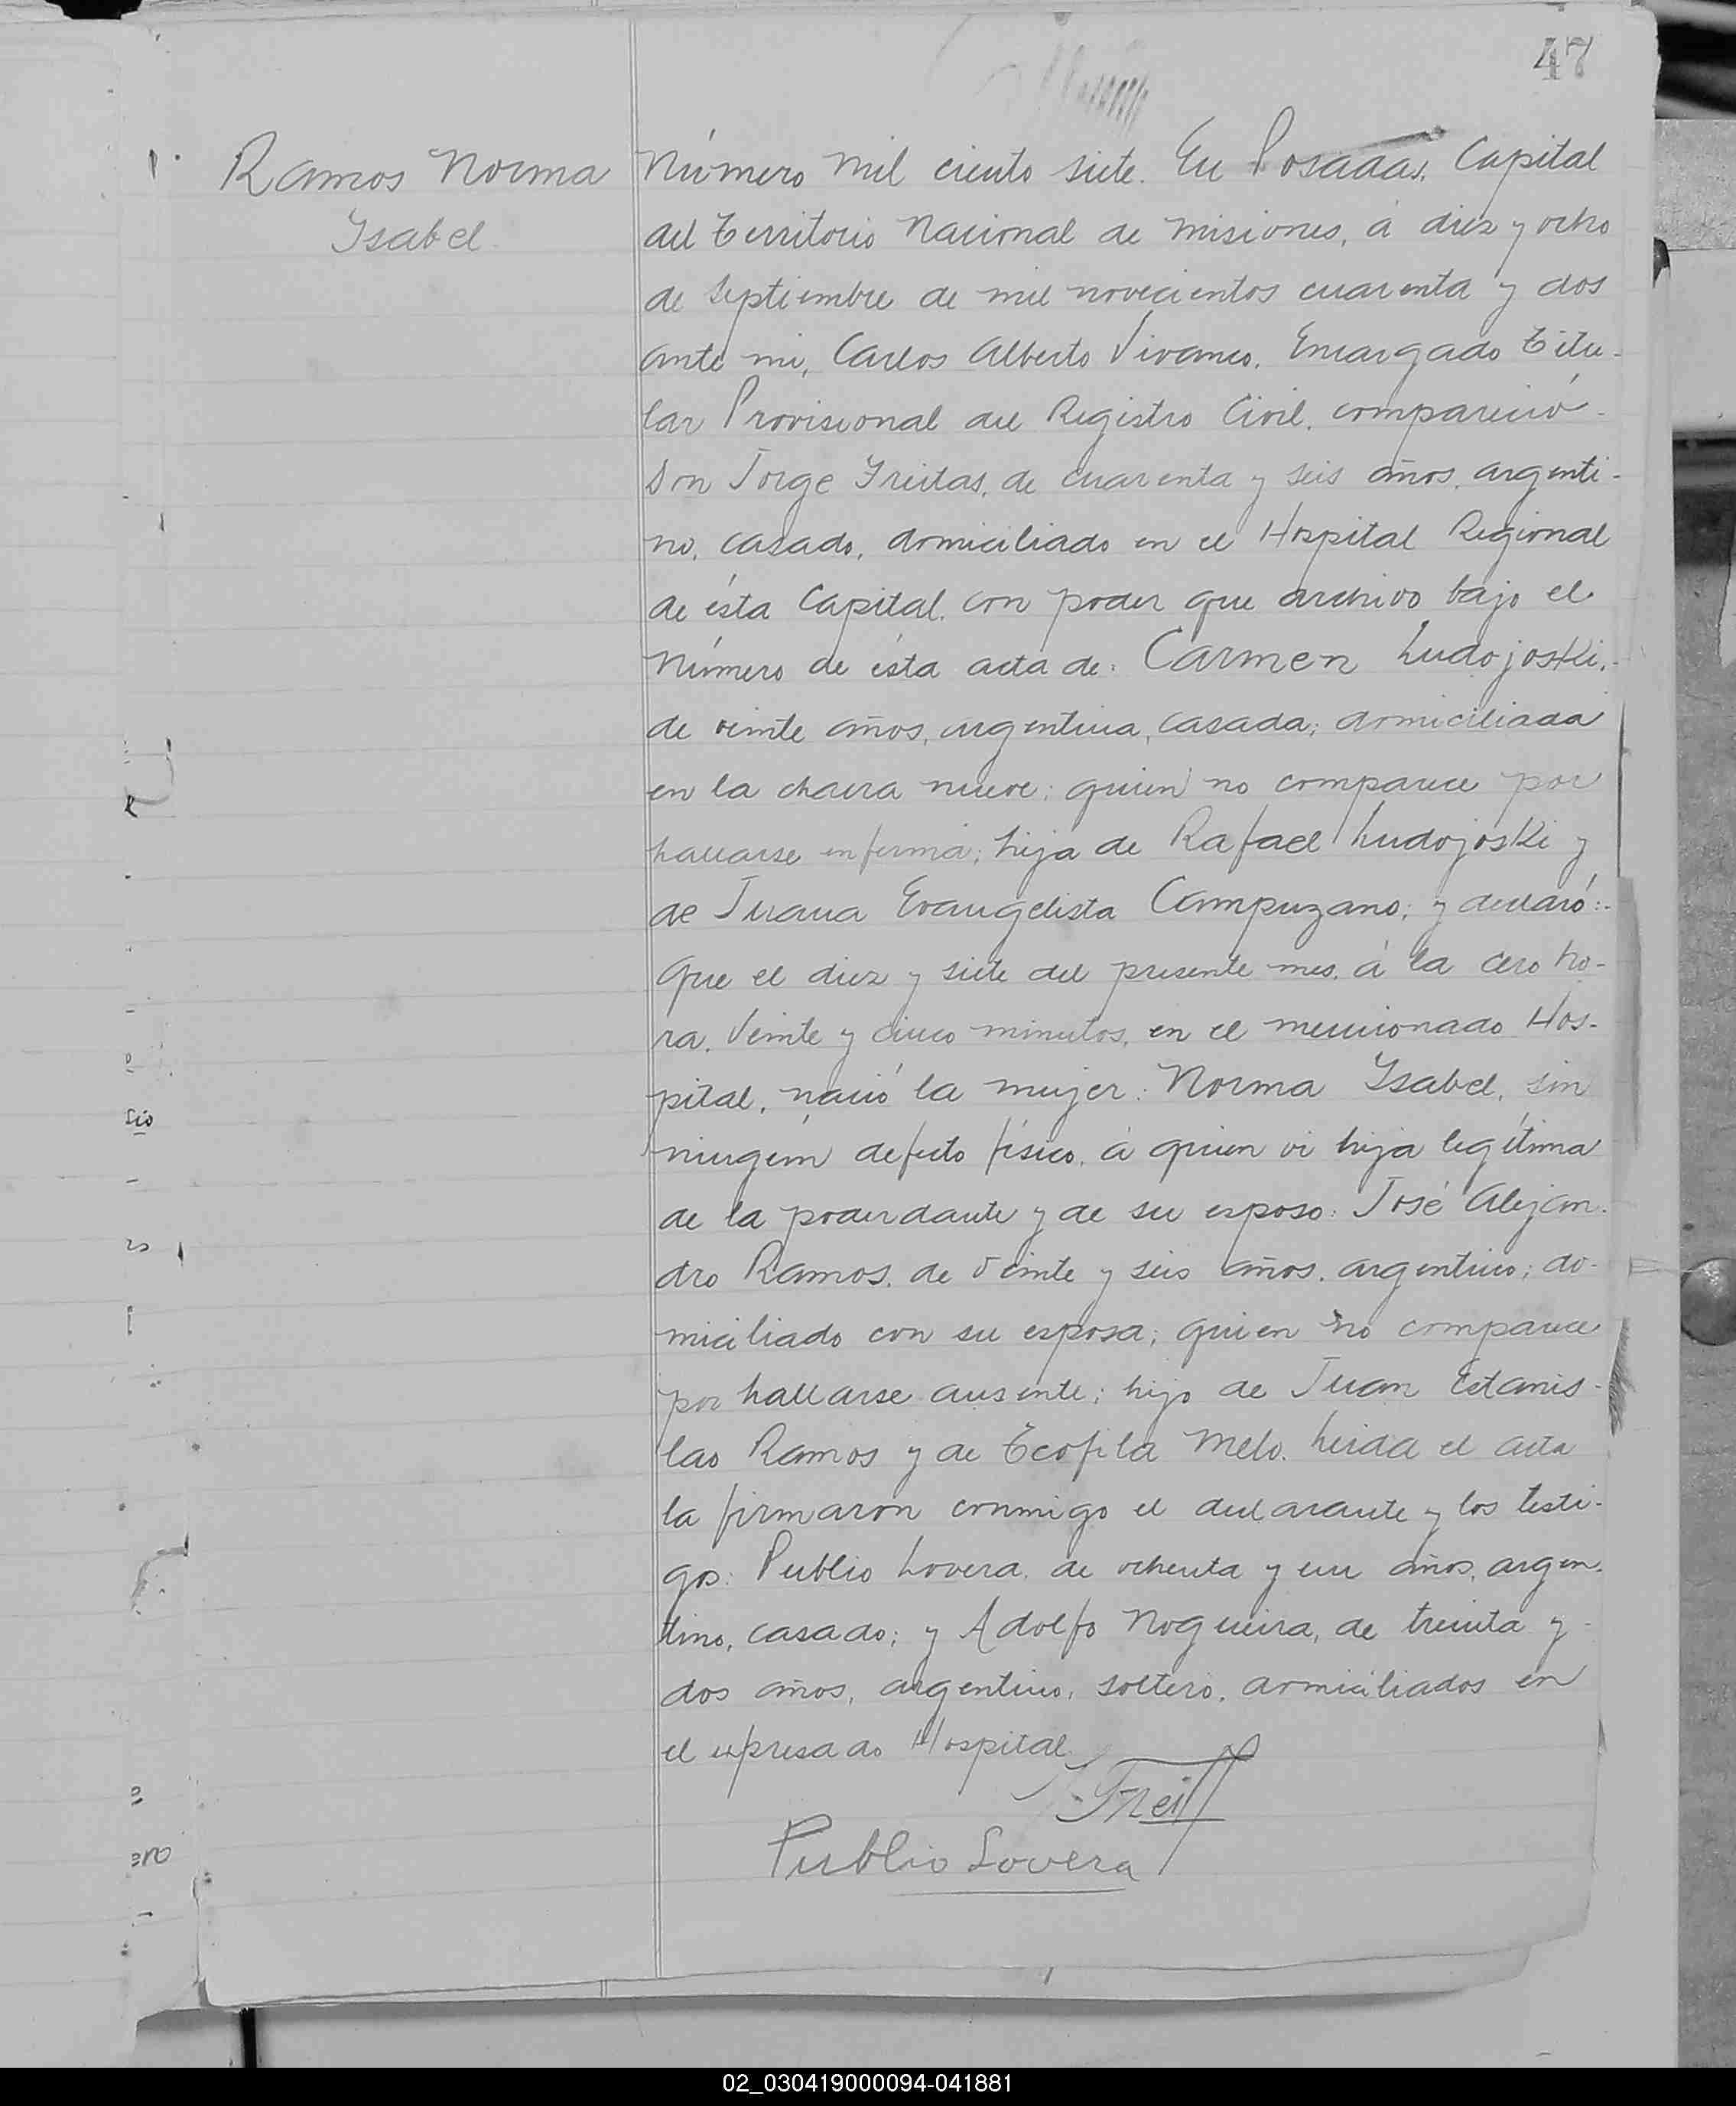 47
Ramos Norma
Ysabel
Número mil ciento siete. En Posadas, Capital
del Territorio Nacional de Misiones, á diez y ocho
de Septiembre de mil novecientos cuarenta y dos
ante mi, Carlos Alberto Vivanco, Encargado Titu-
lar Provisional del Registro Civil, compareció
Don Jorge Freitas, de cuarenta y seis años, argenti-
no, casado, domiciliado en el Hospital Regional
de ésta Capital, con poder que archivo bajo el
Número de ésta acta de: Carmen Ludojoski,
de veinte años, argentina, casada; domiciliada
en la chacra nueve; quien no comparece por
hallarse enferma; hija de Rafael Ludojoski y
de Juana Evangelista Campuzano; y declaró:
Que el diez y siete del presente mes, á la cero ho-
ra, veinte y cinco minutos, en el mencionado Hos-
pital, nació la mujer: Norma Ysabel, sin
ningún defecto físico, á quien vi hija legítima
de la poderdante y de su esposo: José Alejan-
dro Ramos, de veinte y seis años, argentino; do-
miciliado con su esposa; quien no comparece
por hallarse ausente; hijo de Juan Estanis-
lao Ramos y de Teofila Melo. Leida el acta
la firmaron conmigo el declarante y los testi-
gos: Publio Lovera, de ochenta y un años, argen-
tino, casado; y Adolfo Nogueira, de treinta y
dos años, argentino, soltero, domiciliados en
el expresado Hospital
Publio Lovera
02_030419000094-041881